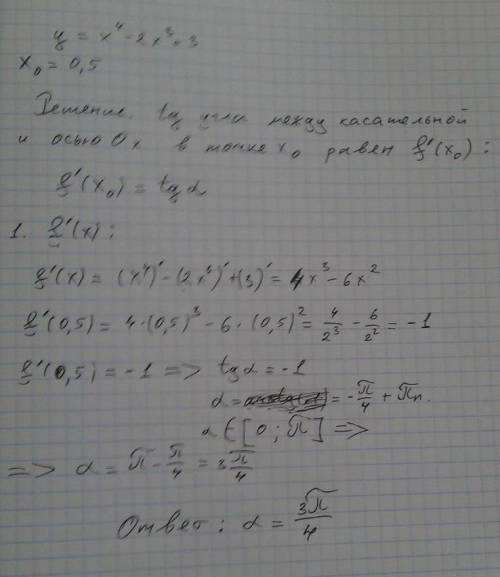 y = x⁴ - 2x³ + 3
x₀ = 0,5
Решение. tg угла между касательной
и осью Ox в точке x₀ равен f'(x₀):
f'(x₀) = tg α
1. f'(x):
f'(x) = (x⁴)' - (2x³)' + (3)' = 4x³ - 6x²
f'(0,5) = 4·(0,5)³ - 6·(0,5)² = 4/2³ - 6/2² = -1
f'(0,5) = -1 => tg α = -1
α = = -π/4 + πn.
α ∈ [0; π] =>
=> α = π - π/4 = 3π/4
Ответ: α = 3π/4